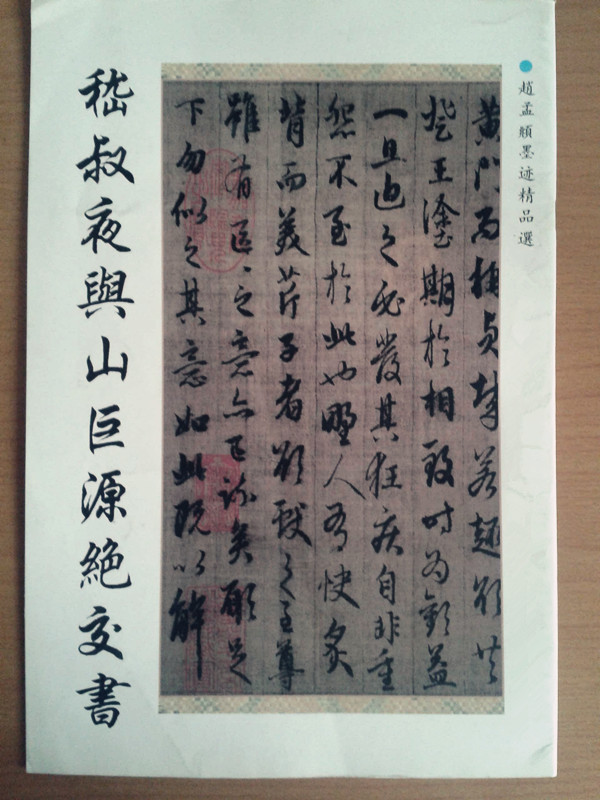 趙孟頫墨迹精品選
黄門而稱貞哉若趣欲共
登王塗期於相致時為歡益
一旦迫之必發其狂疾自非重
怨不至於此也野人有快炙
背而美芹子者欲獻之至尊
雖有區〻之意亦已疎矣願足
下勿似之其意如此既以解
嵇叔夜與山巨源絶交書